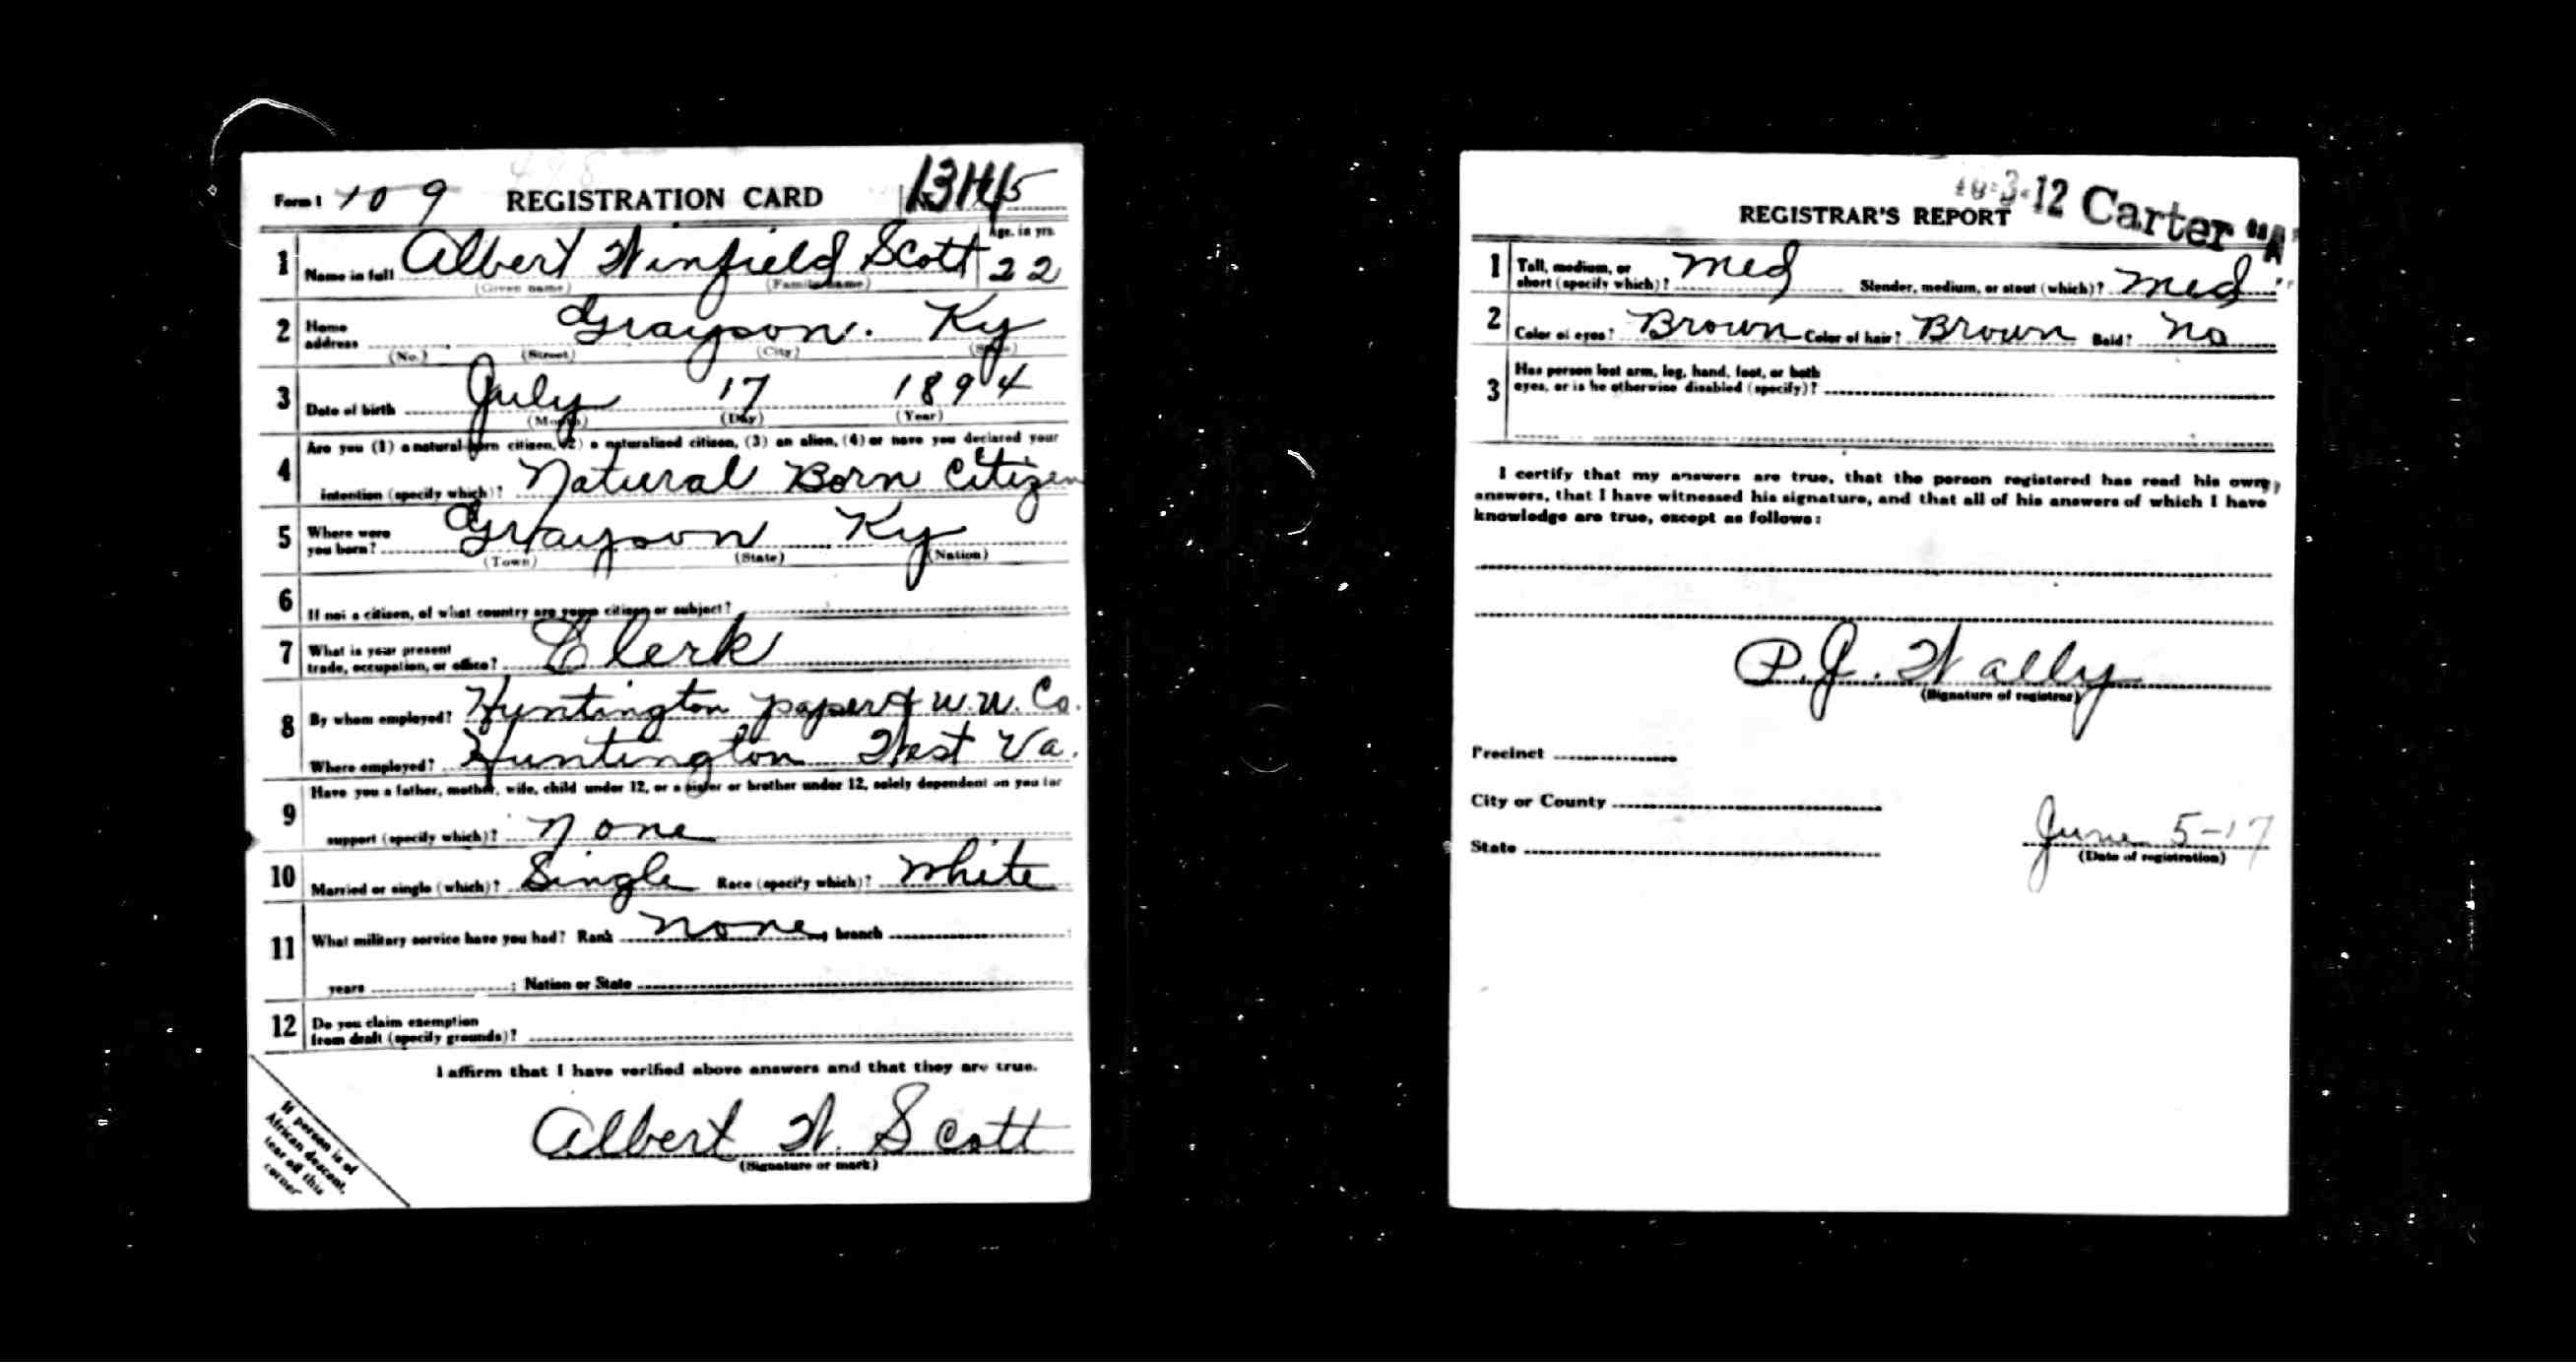 Form 1 109 REGISTRATION CARD
Age, in yrs.
1 Name in full Albert Winfield Scott 22
(Given name) (Family name)
2 Home address Grayson. Ky
(No.) (Street) (City) (State)
3 Date of birth July 17 1894
(Month) (Day) (Year)
4 Are you (1) a natural-born citizen, (2) a naturalized citizen, (3) an alien, (4) or have you declared your
intention (specify which)? Natural Born Citizen
5 Where were you born? Grayson Ky
(Town) (State) (Nation)
6 If not a citizen, of what country are you a citizen or subject?
7 What is your present trade, occupation, or office? Clerk
8 By whom employed? Huntington paper & W.W. Co.
Where employed? Huntington West Va.
9 Have you a father, mother, wife, child under 12, or a sister or brother under 12, solely dependent on you for
support (specify which)? None
10 Married or single (which)? Single Race (specify which)? White
11 What military service have you had? Rank none, branch
years ; Nation or State
12 Do you claim exemption
from draft (specify grounds)?
I affirm that I have verified above answers and that they are true.
Albert W. Scott
(Signature or mark)
If person is of
African descent,
tear off this
corner
Carter "A"
REGISTRAR'S REPORT
1 Tall, medium, or
short (specify which)? Med Slender, medium, or stout (which)? Med
2 Color of eyes? Brown Color of hair? Brown Bald? No
3 Has person lost arm, leg, hand, foot, or both
eyes, or is he otherwise disabled (specify)?
I certify that my answers are true, that the person registered has read his own
answers, that I have witnessed his signature, and that all of his answers of which I have
knowledge are true, except as follows:
P. J. Wally
(Signature of registrar)
Precinct
City or County
State
June 5-17
(Date of registration)